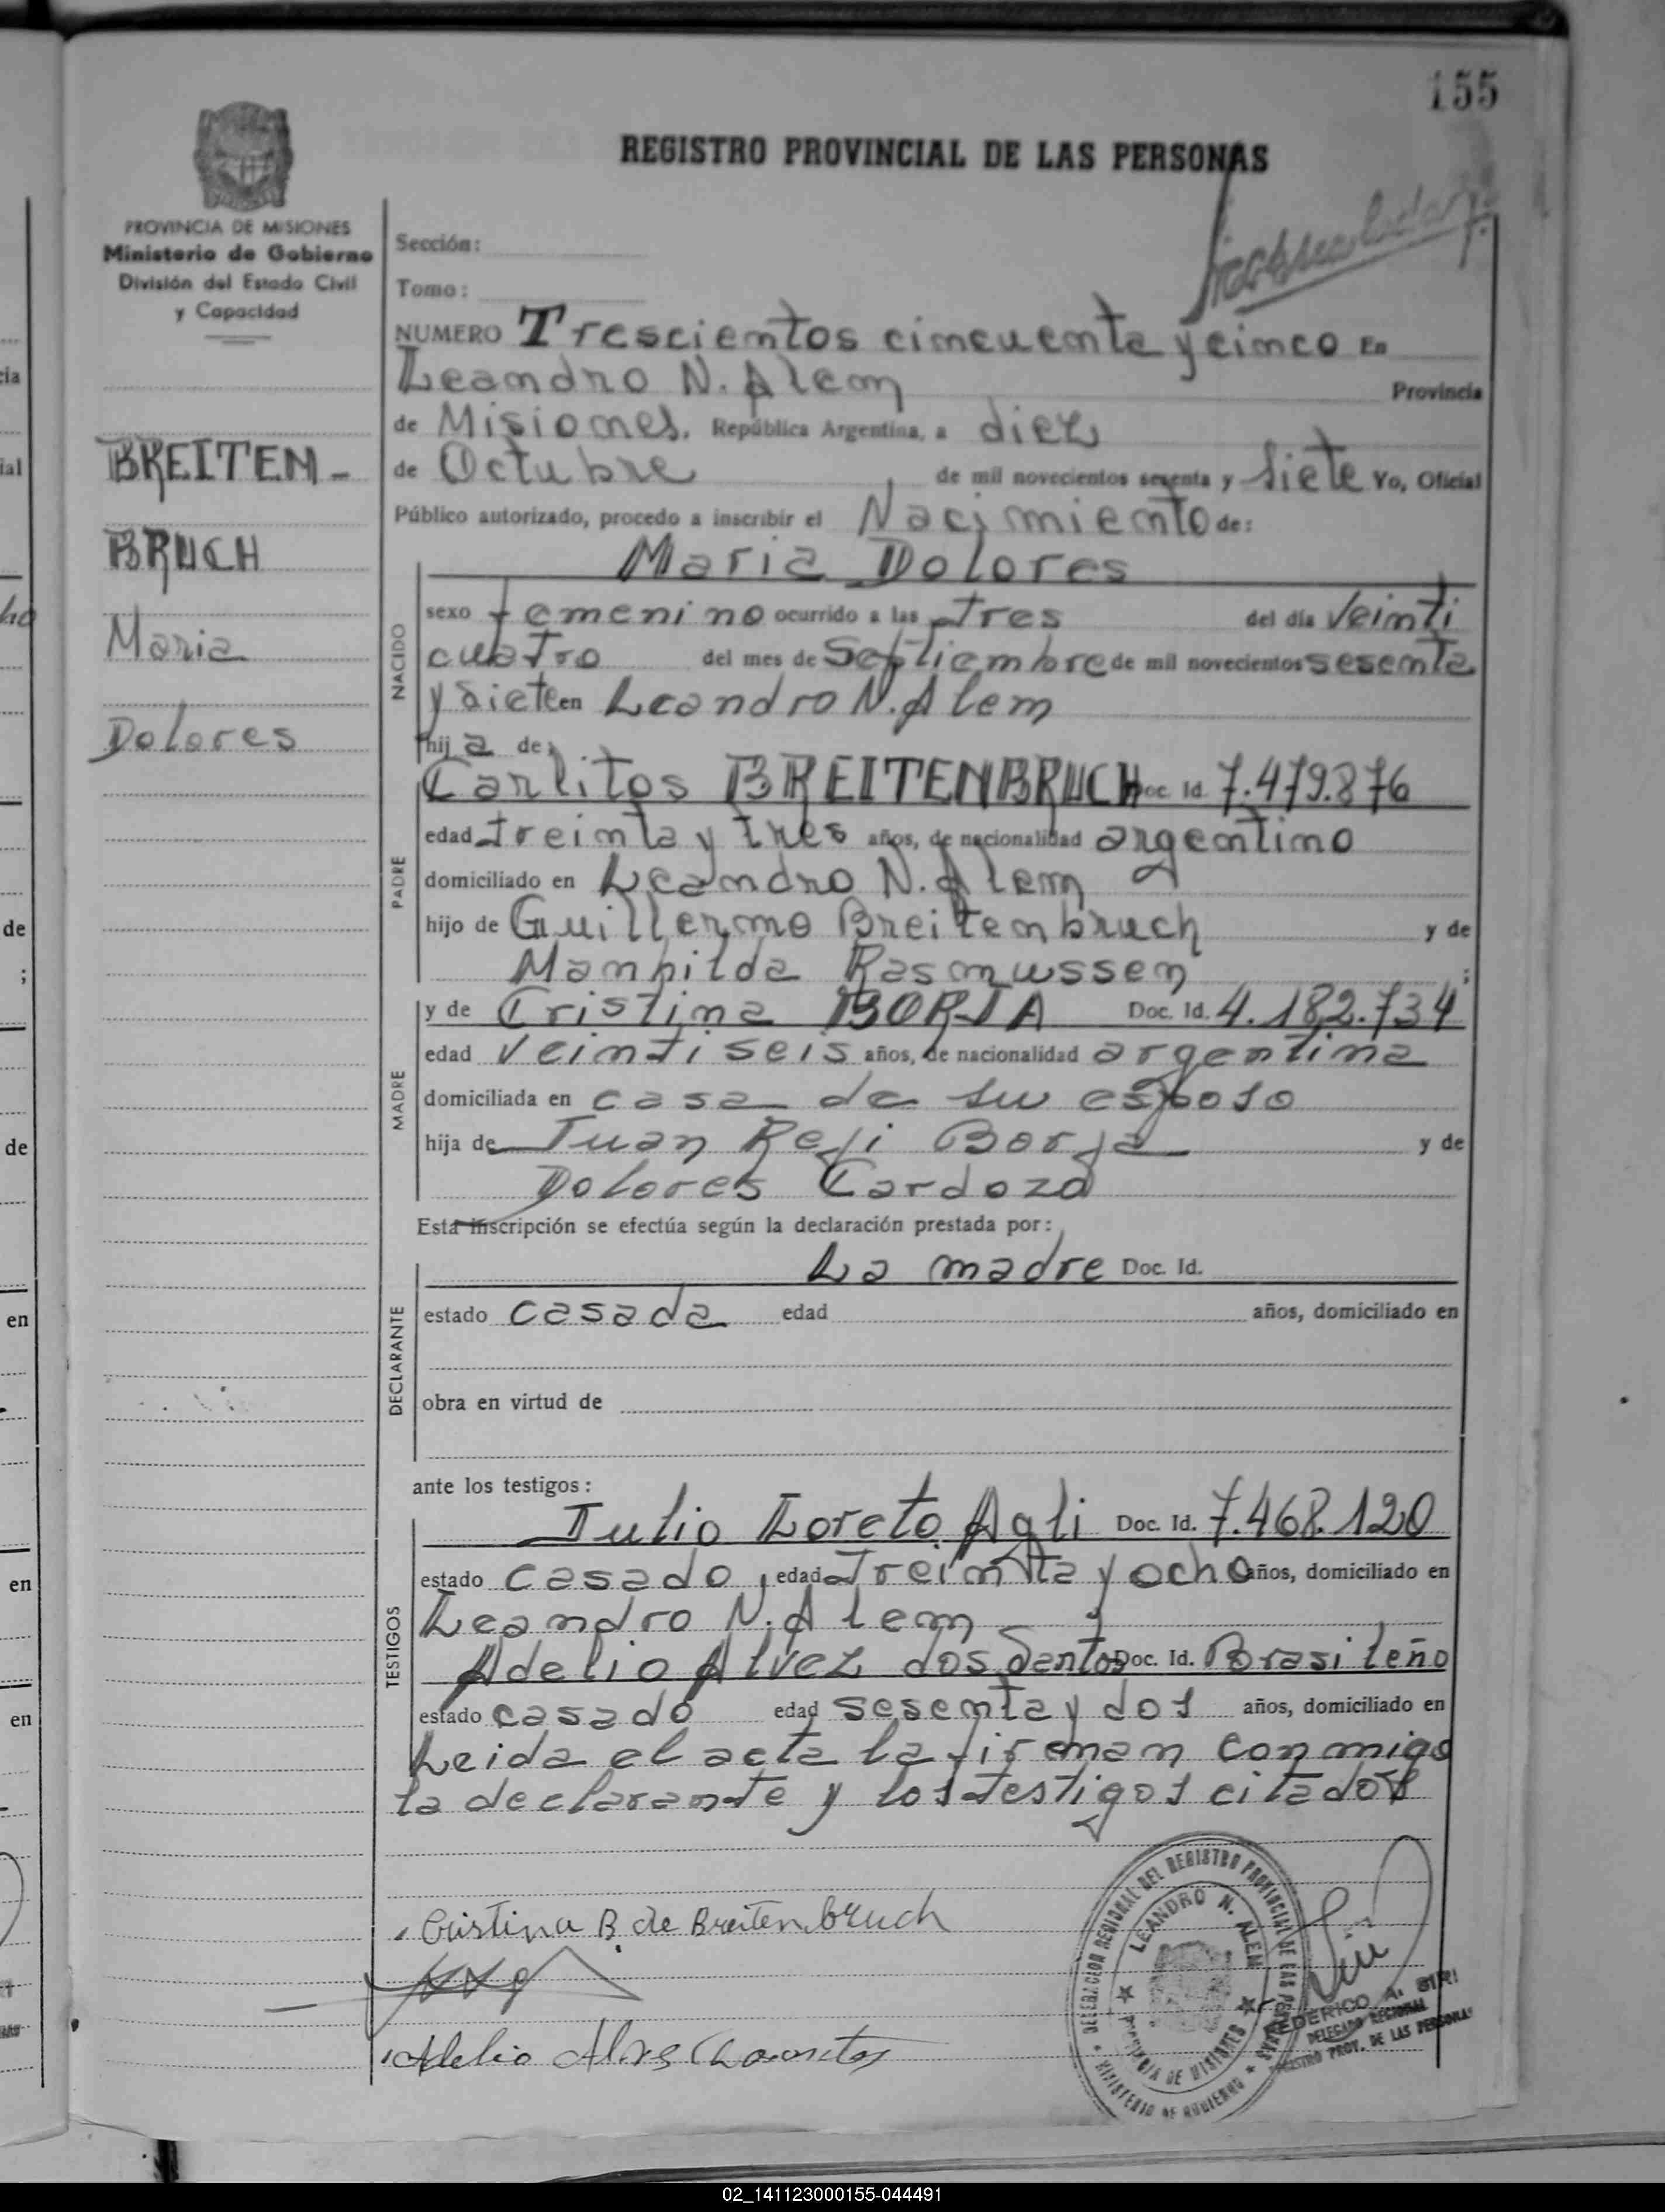 155
REGISTRO PROVINCIAL DE LAS PERSONAS
PROVINCIA DE MISIONES
Ministerio de Gobierno
División del Estado Civil
y Capacidad
Sección:
Tomo:
NUMERO Trescientos cincuenta y cinco En
Leandro N. Alem Provincia
de Misiones. República Argentina, a diez
de Octubre de mil novecientos sesenta y siete Yo, Oficial
Público autorizado, procedo a inscribir el Nacimiento de:
BREITEN-
BRUCH
Maria
Dolores
Maria Dolores
NACIDO
sexo femenino ocurrido a las tres del día Veinti
cuatro del mes de Septiembre de mil novecientos sesenta
y siete en Leandro N. Alem
hija de:
PADRE
Carlitos BREITENBRUCH Doc. Id. 7.479.876
edad treinta y tres años, de nacionalidad argentino
domiciliado en Leandro N. Alem
hijo de Guillermo Breitenbruch y de
Manhilda Rasmussen ;
MADRE
y de Cristina BORJA Doc. Id. 4.182.734
edad veintiseis años, de nacionalidad argentina
domiciliada en casa de su esposo
hija de Juan Borja y de
Dolores Cardozo
Esta inscripción se efectúa según la declaración prestada por:
DECLARANTE
La madre Doc. Id.
estado casada edad años, domiciliado en
obra en virtud de
ante los testigos:
TESTIGOS
Julio Loreto Agli Doc. Id. 7.468.120
estado casado, edad Treinta y ocho años, domiciliado en
Leandro N. Alem y
Adelio Alvez dos Santos Doc. Id. Brasileño
estado casado edad sesenta y dos años, domiciliado en
Leida el acta la firman conmigo
la declarante y los testigos citados
Cristina B. de Breitenbruch
Adelio
DELEGACION REGIONAL DEL REGISTRO PROVINCIAL DE LAS PERSONAS
LEANDRO N. ALEM
PROVINCIA DE MISIONES
MINISTERIO DE GOBIERNO
FEDERICO A.
DELEGADO REGIONAL
REGISTRO PROV. DE LAS PERSONAS
02_141123000155-044491